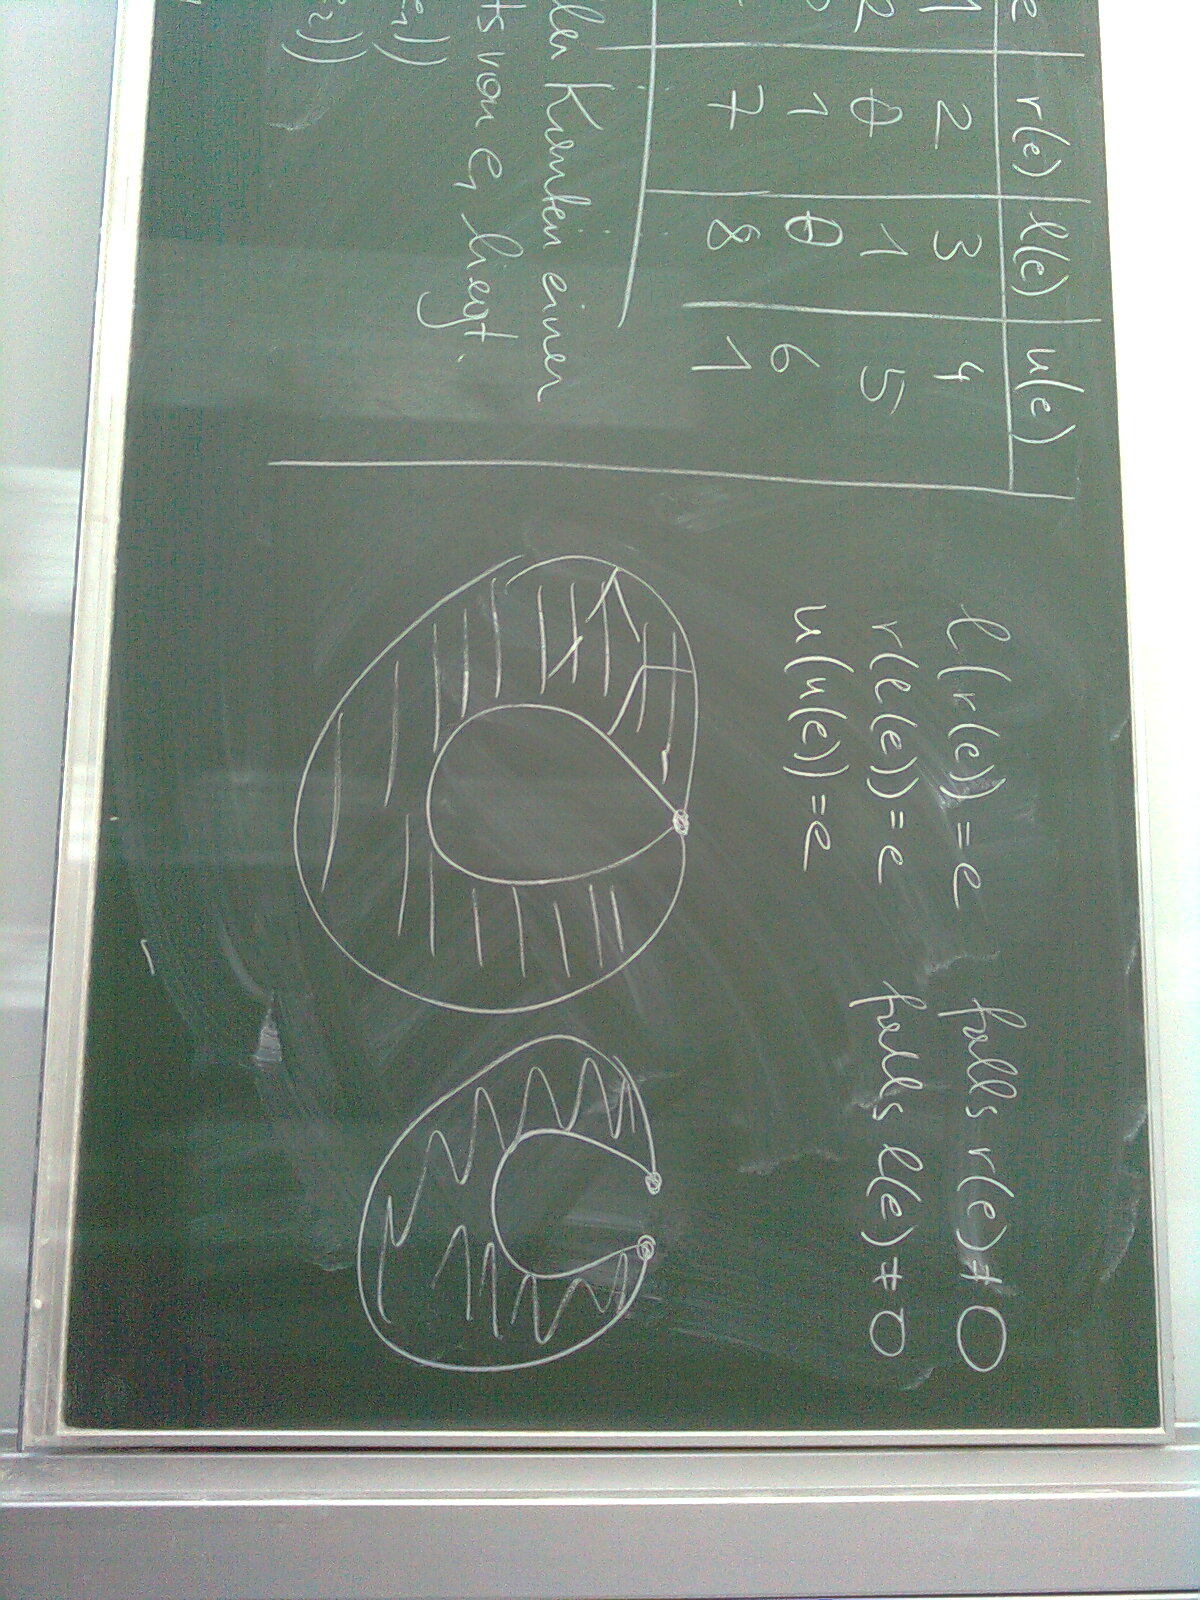 e r(e) l(e) u(e)
1 2 3 4
2 0 1 5
1 0 6
7 8 1
Kanten einer
ts von e₁ liegt.
e₁))
₂))
l(r(e)) = e falls r(e) ≠ 0
r(l(e)) = e falls l(e) ≠ 0
u(u(e)) = e